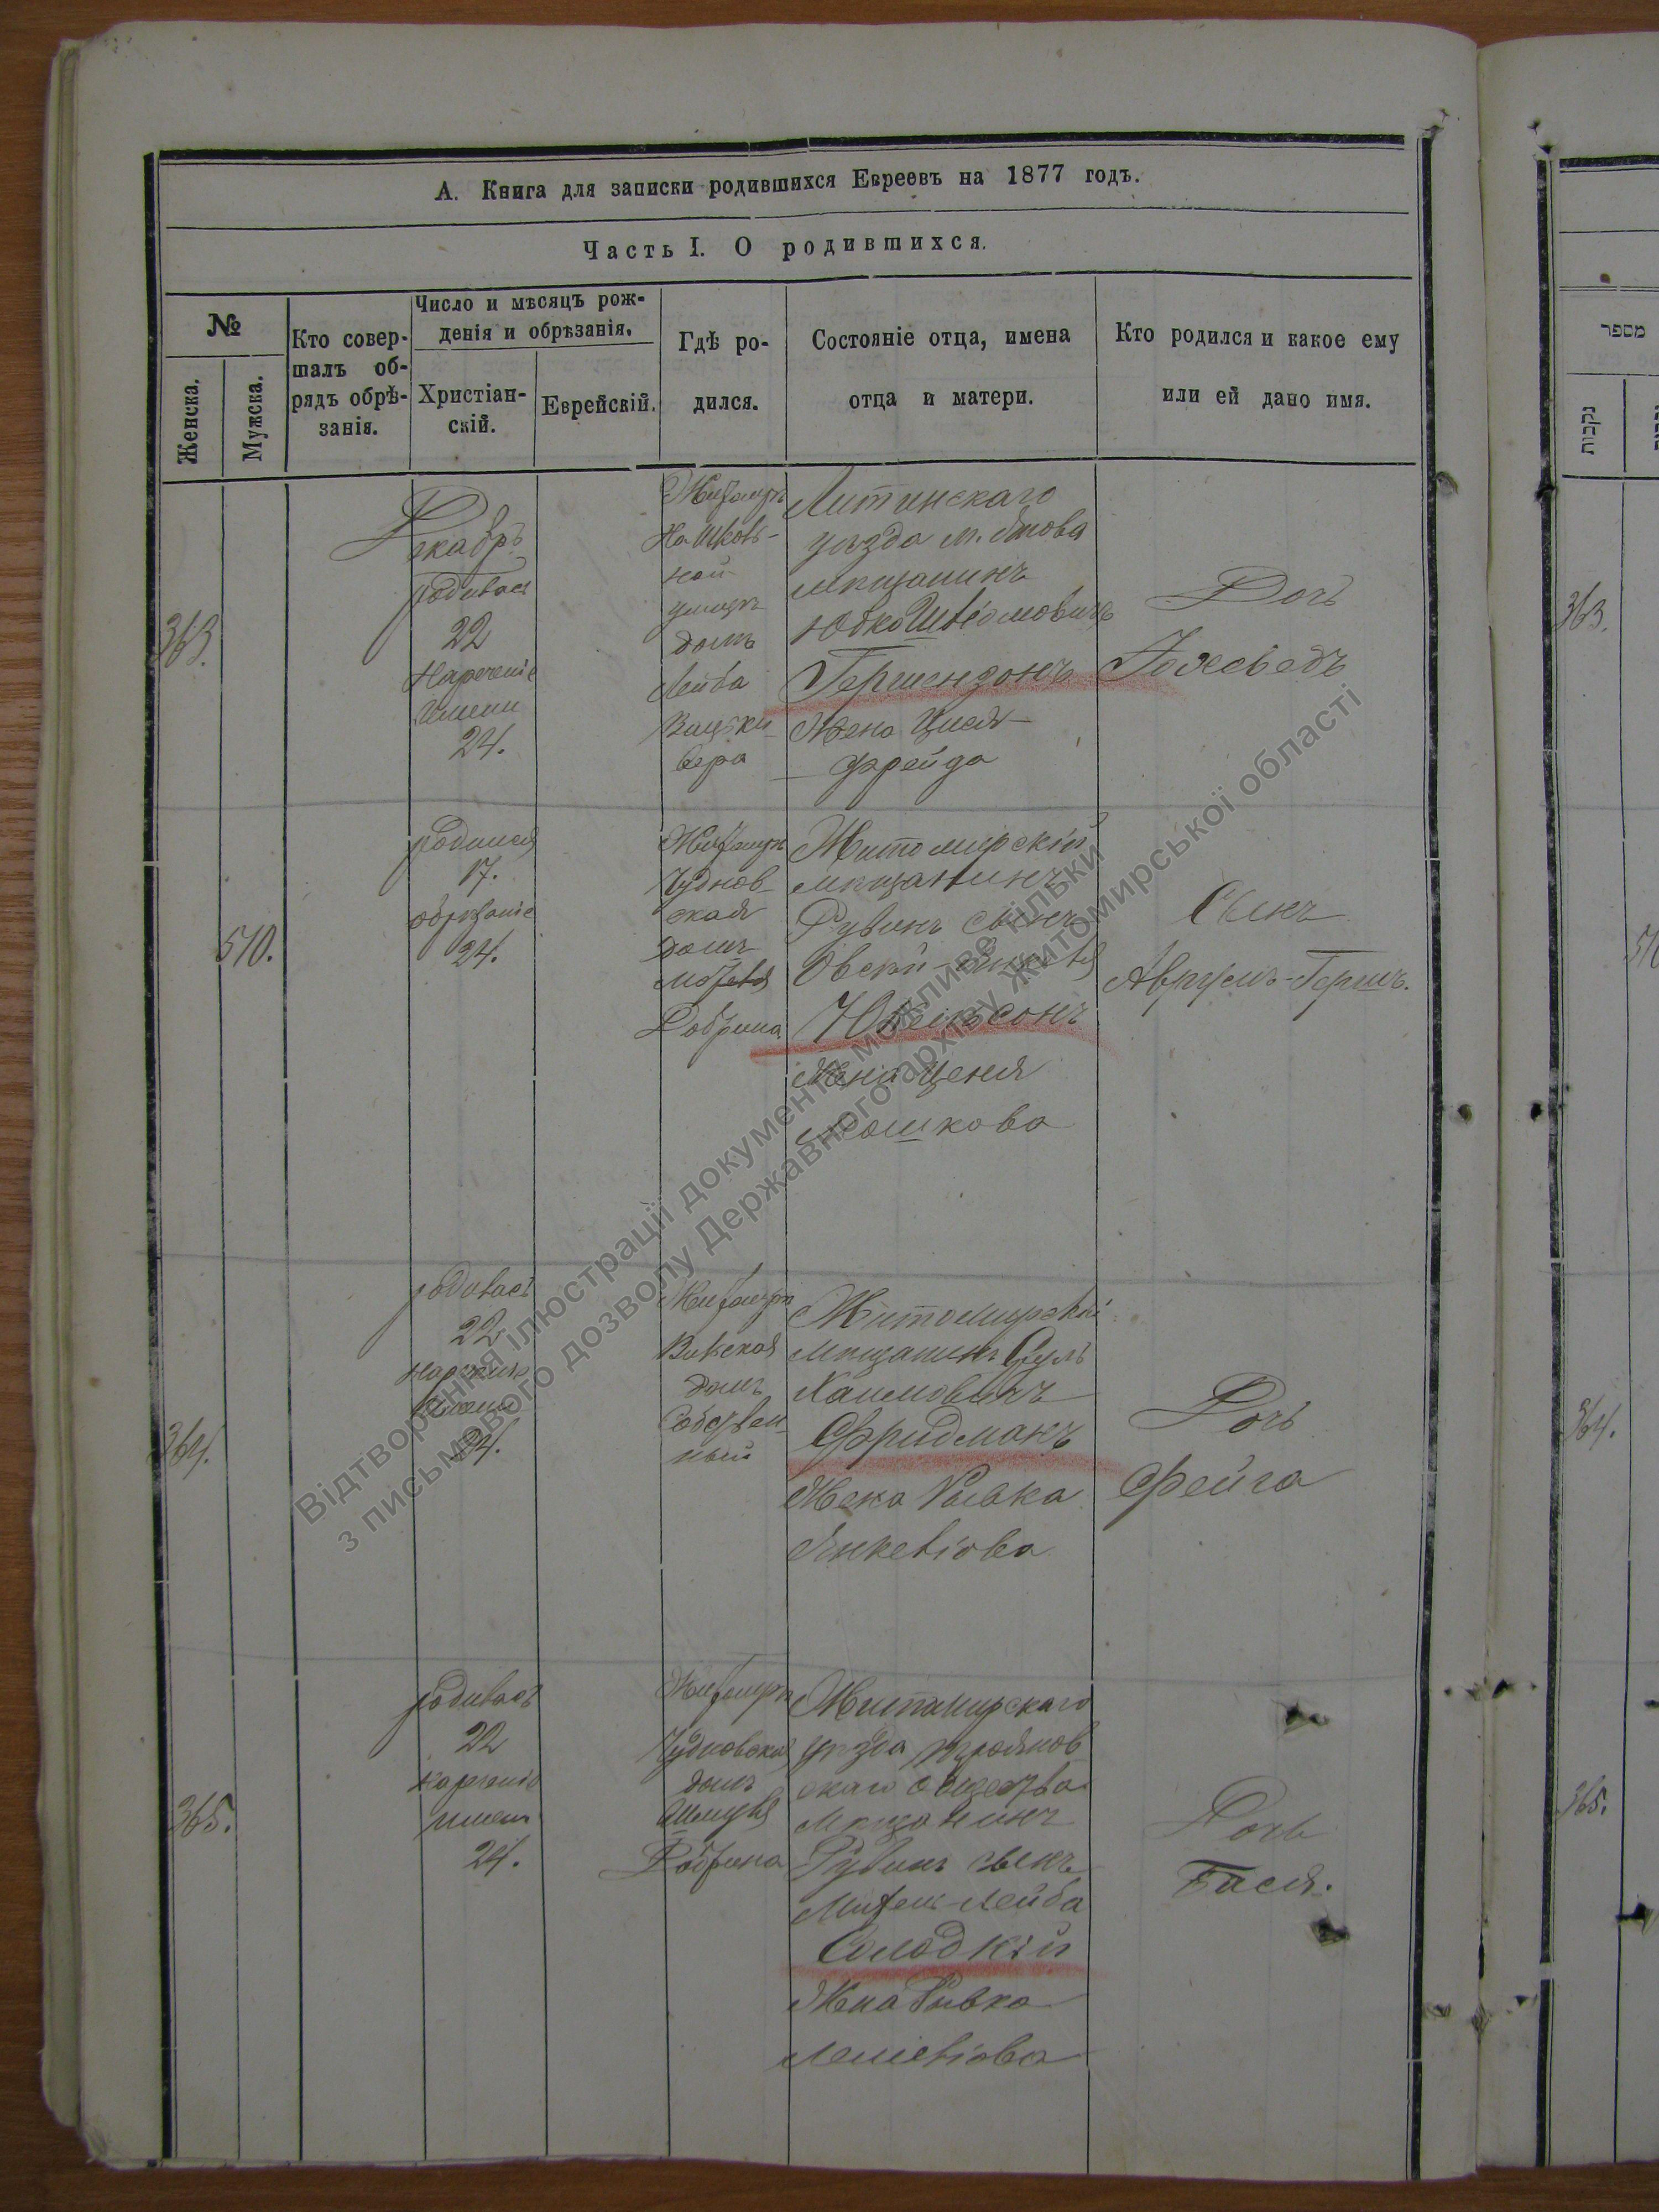 А. Книга для записки родившихся Евреевъ на 1877 годъ.
Часть I. О родившихся.
№
Женска.
Мужска.
Кто совер-
шалъ об-
рядъ обрѣ-
занія.
Число и мѣсяцъ рож-
денія и обрѣзанія.
Христіан-
скій.
Еврейскій.
Гдѣ ро-
дился.
Состояніе отца, имена
отца и матери.
Кто родился и какое ему
или ей дано имя.
363.
Декабрь
родилась
22
Нареченіе
Имени
24.
Житомиръ
На Шков-
ной
улицѣ
домъ
Лейба
Литинскаго
уѣзда м.
мѣщанинъ
Юдко
Гершензонъ
Жена Цися
Фрейда
Дочь
Іохеведъ
510.
родился
17.
обрѣзаніе
24.
Житомиръ
Чуднов-
ская
домъ
Мотея
Добрина
Житомирскій
мѣщанинъ
Рувинъ сынъ
Жена Ценя
Мошкова
Сынъ
Аврумъ-Гершъ.
364.
родилась
22
нареченіе
имени
24.
Житомиръ
Вильская
домъ
Собствен-
ный
Житомирскій
мѣщанинъ Сруль
Хаимовичъ
Фридманъ
Жена Ривка
Янкеліова
Дочь
Фейга
365.
родилась
22
нареченіе
имени
24.
Житомиръ
Чудновская
домъ
Шмуля
Добрина
Житомирскаго
уѣзда трояновъ
скаго общества
Мѣщанинъ
Рувинъ сынъ
Мотель-Лейба
Солодкій
Жена Ривка
Дочь
Бася.
מספר
נקבות
363.
510
364.
365.
Відтворення ілюстрації документа можливе тільки
з письмового дозволу Державного архіву Житомирської області